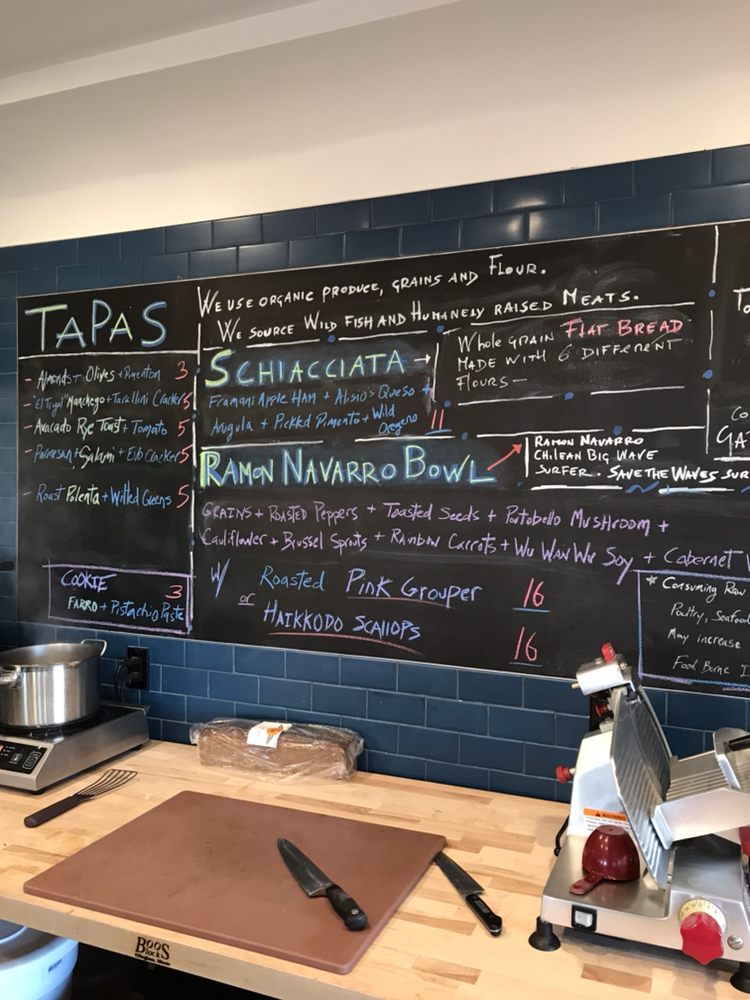 TAPAS
- Almonds + Olives + Pimenton 3
- "El Trigal" Manchego + Tarallini Crackers 5
- Avacado Rye Toast + Tomato 5
- Parmesan + Salami + Elb Cracker 5
- Roast Polenta + Wilted Greens 5
COOKIE 3
FARRO + Pistachio Paste
WE USE ORGANIC PRODUCE, GRAINS AND FLOUR.
WE SOURCE WILD FISH AND HUMANELY RAISED MEATS.
SCHIACCIATA →
Framani Apple HAM + Alisio's Queso +
Arugula + Pickld Pimento + Wild
Oregeno 11
Whole GRAIN FLAT BREAD
MADE WITH 6 DIFFERENT
FLOURS —
RAMON NAVARRO BOWL
RAMON NAVARRO
CHILEAN BIG WAVE
SURFER. SAVE THE WAVES SUR
GRAINS + ROASTED Peppers + Toasted Seeds + Portobello Mushroom +
Cauliflower + Brussel Sprouts + Rainbow Carrots + Wu Wan Wu Soy + Cabernet
W/ Roasted Pink Grouper 16
or HAIKKODO SCALLOPS 16
To
Co
GA
* Consuming Raw
Poultry, Seafood
May increase
Food Borne I
WARNING
BOOS
Blocks